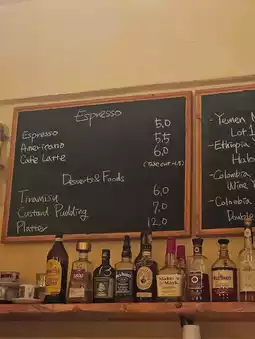 Espresso
Espresso 5.0
Americano 5.5
Cafe Latte 6.0
(Take out -1.5)
Desserts & Foods
Tiramisu 6.0
Custard Pudding 7.0
Platter 12.0
- Yemen
Lot 1
- Ethiopia
- Colombia
Wine
- Colombia
Double
Maker's Mark